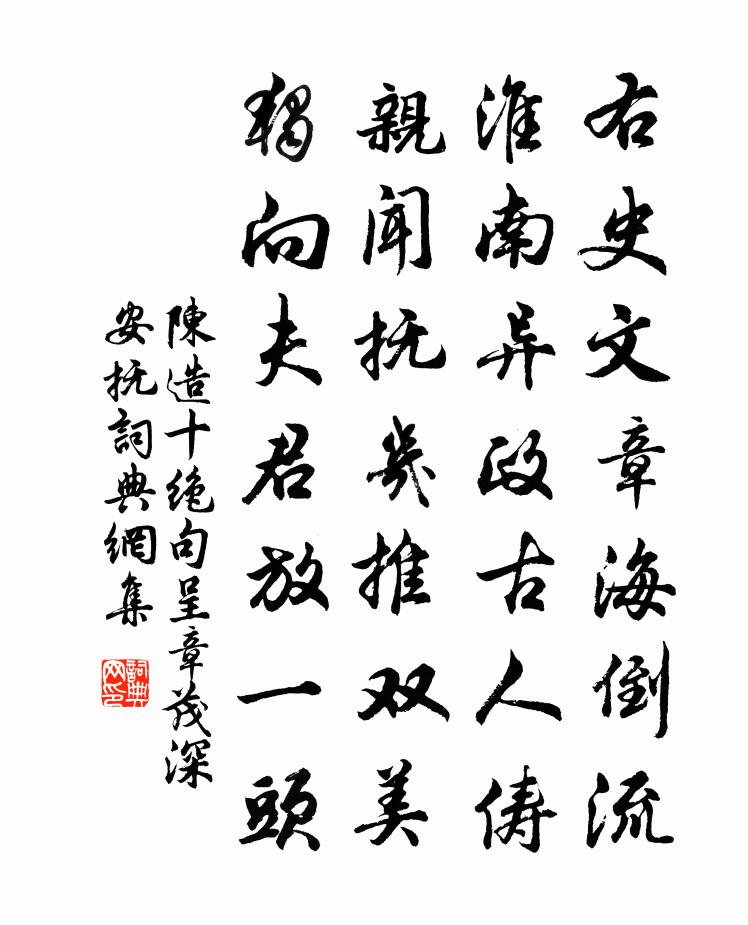 右史文章海倒流
淮南异政古人俦
親聞抚幾推双美
獨向夫君放一頭
陳造十絶句呈章茂深
安抚詞典網集
詞典网印